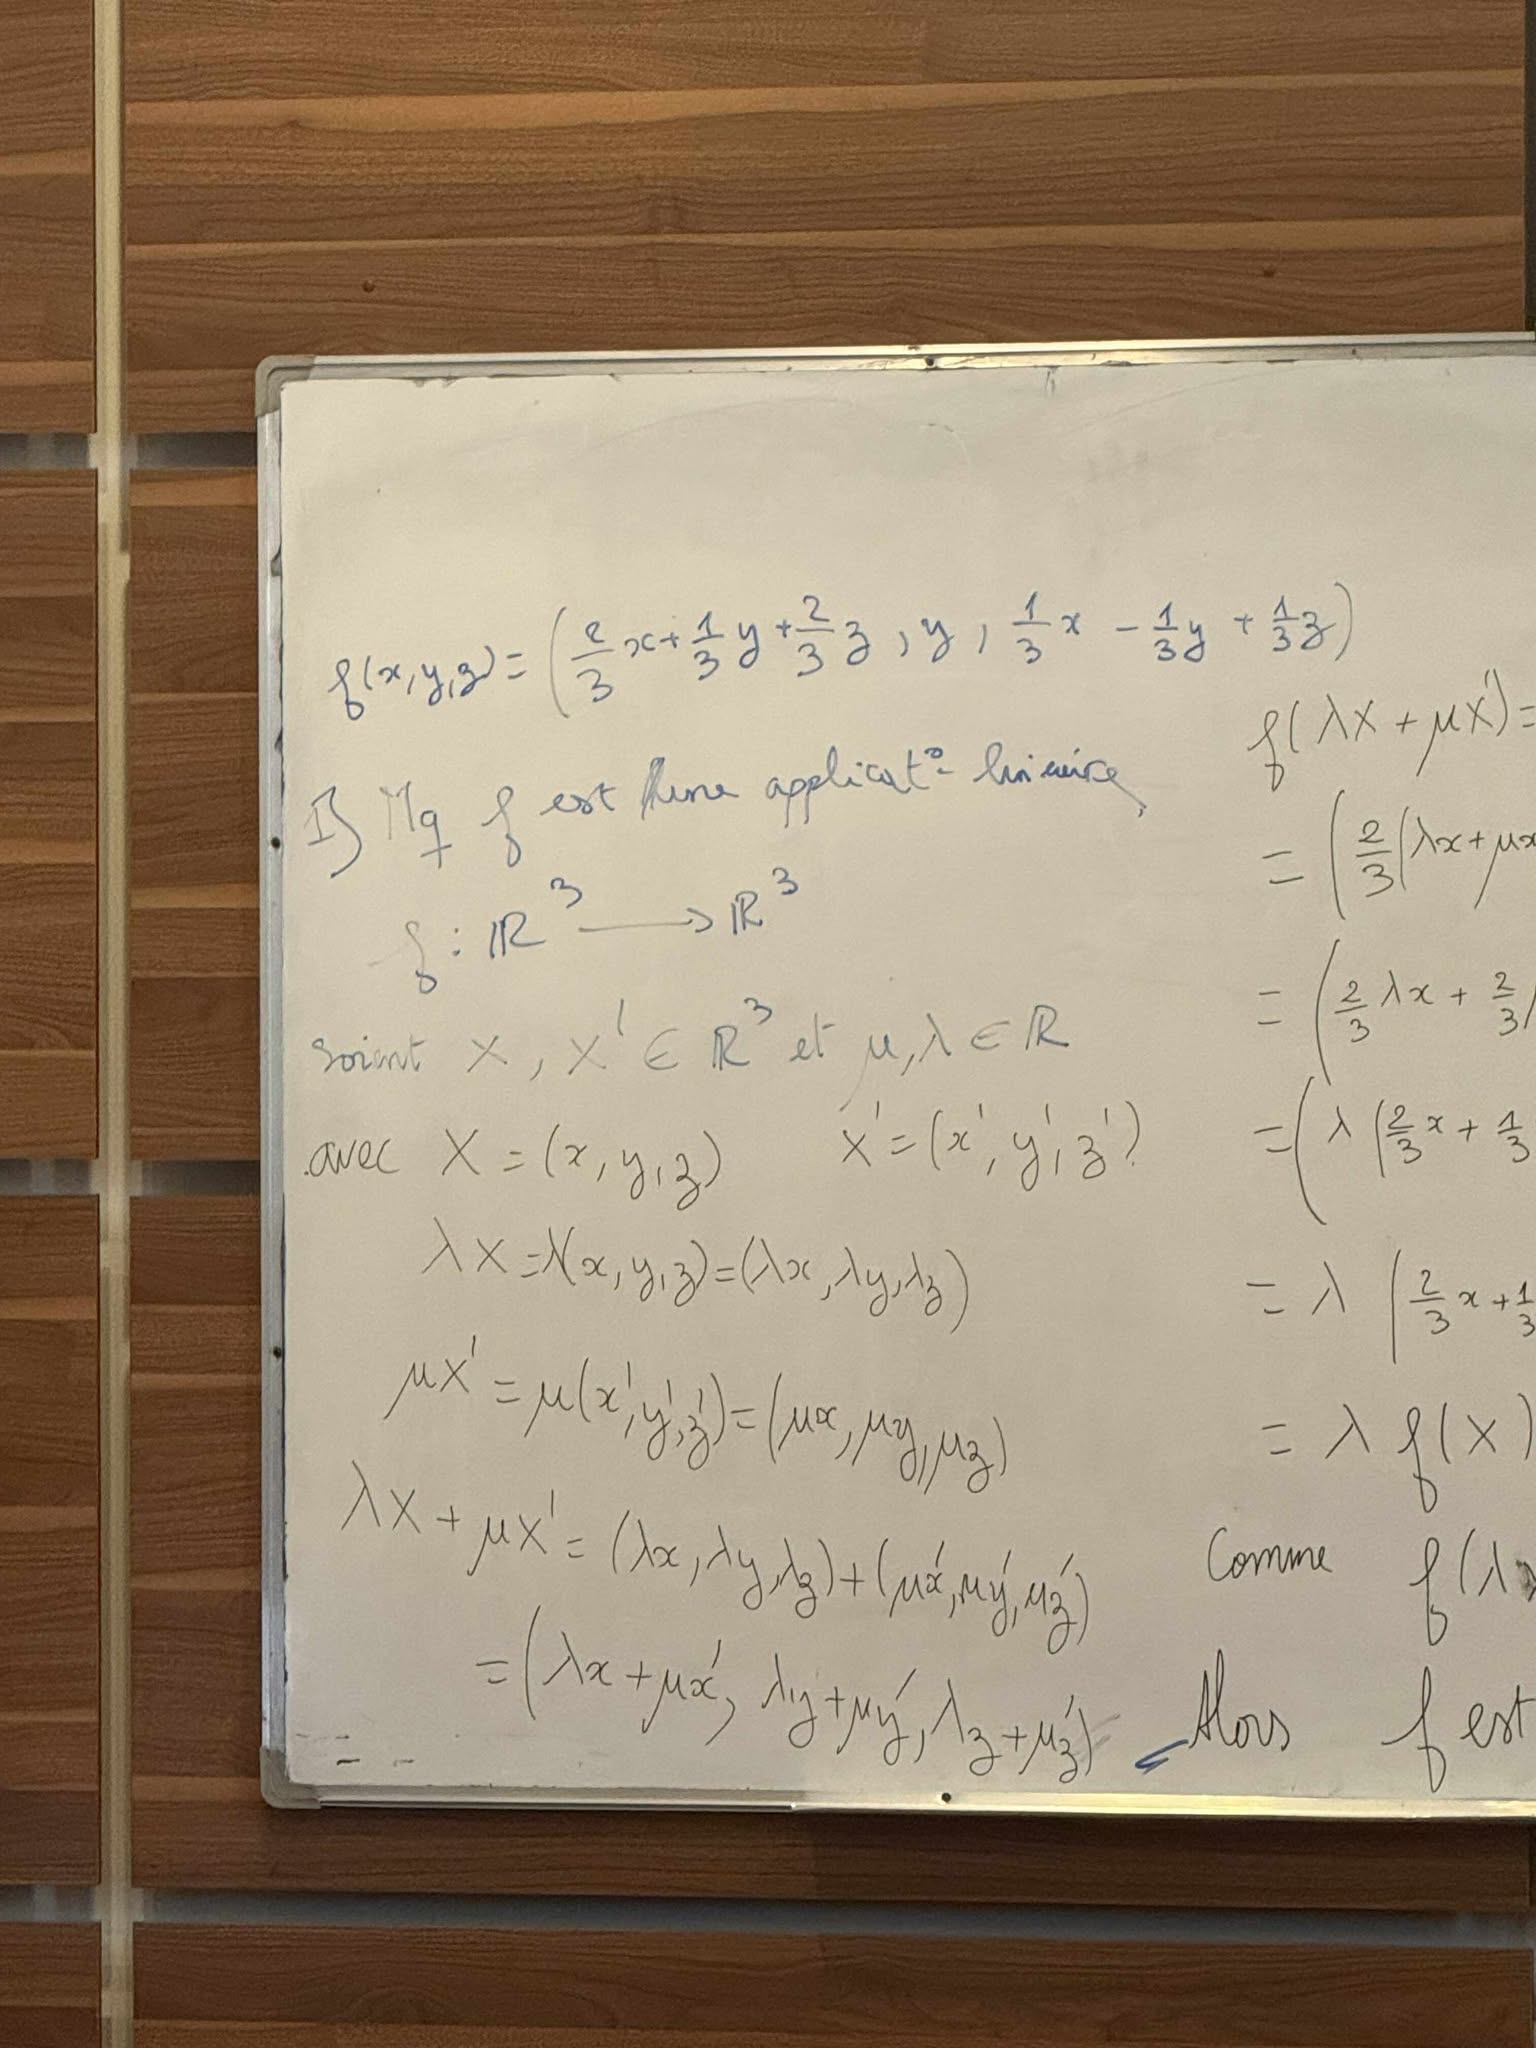 f(x,y,z) = (2/3 x + 1/3 y + 2/3 z , y , 1/3 x - 1/3 y + 1/3 z)
1) Mq f est une applicat° linéaire,
f : ℝ³ ⟶ ℝ³
soient X , X' ∈ ℝ³ et μ, λ ∈ ℝ
avec X = (x, y, z) X' = (x', y', z')
λX = λ(x, y, z) = (λx, λy, λz)
μX' = μ(x', y', z') = (μx, μy, μz)
λX + μX' = (λx, λy, λz) + (μx', μy', μz')
= (λx + μx', λy + μy', λz + μz')
f(λX + μX') =
= (2/3 (λx + μx
= (2/3 λx + 2/3
= (λ (2/3 x + 1/3
= λ (2/3 x + 1/3
= λ f(X)
Comme f(λx
Alors f est